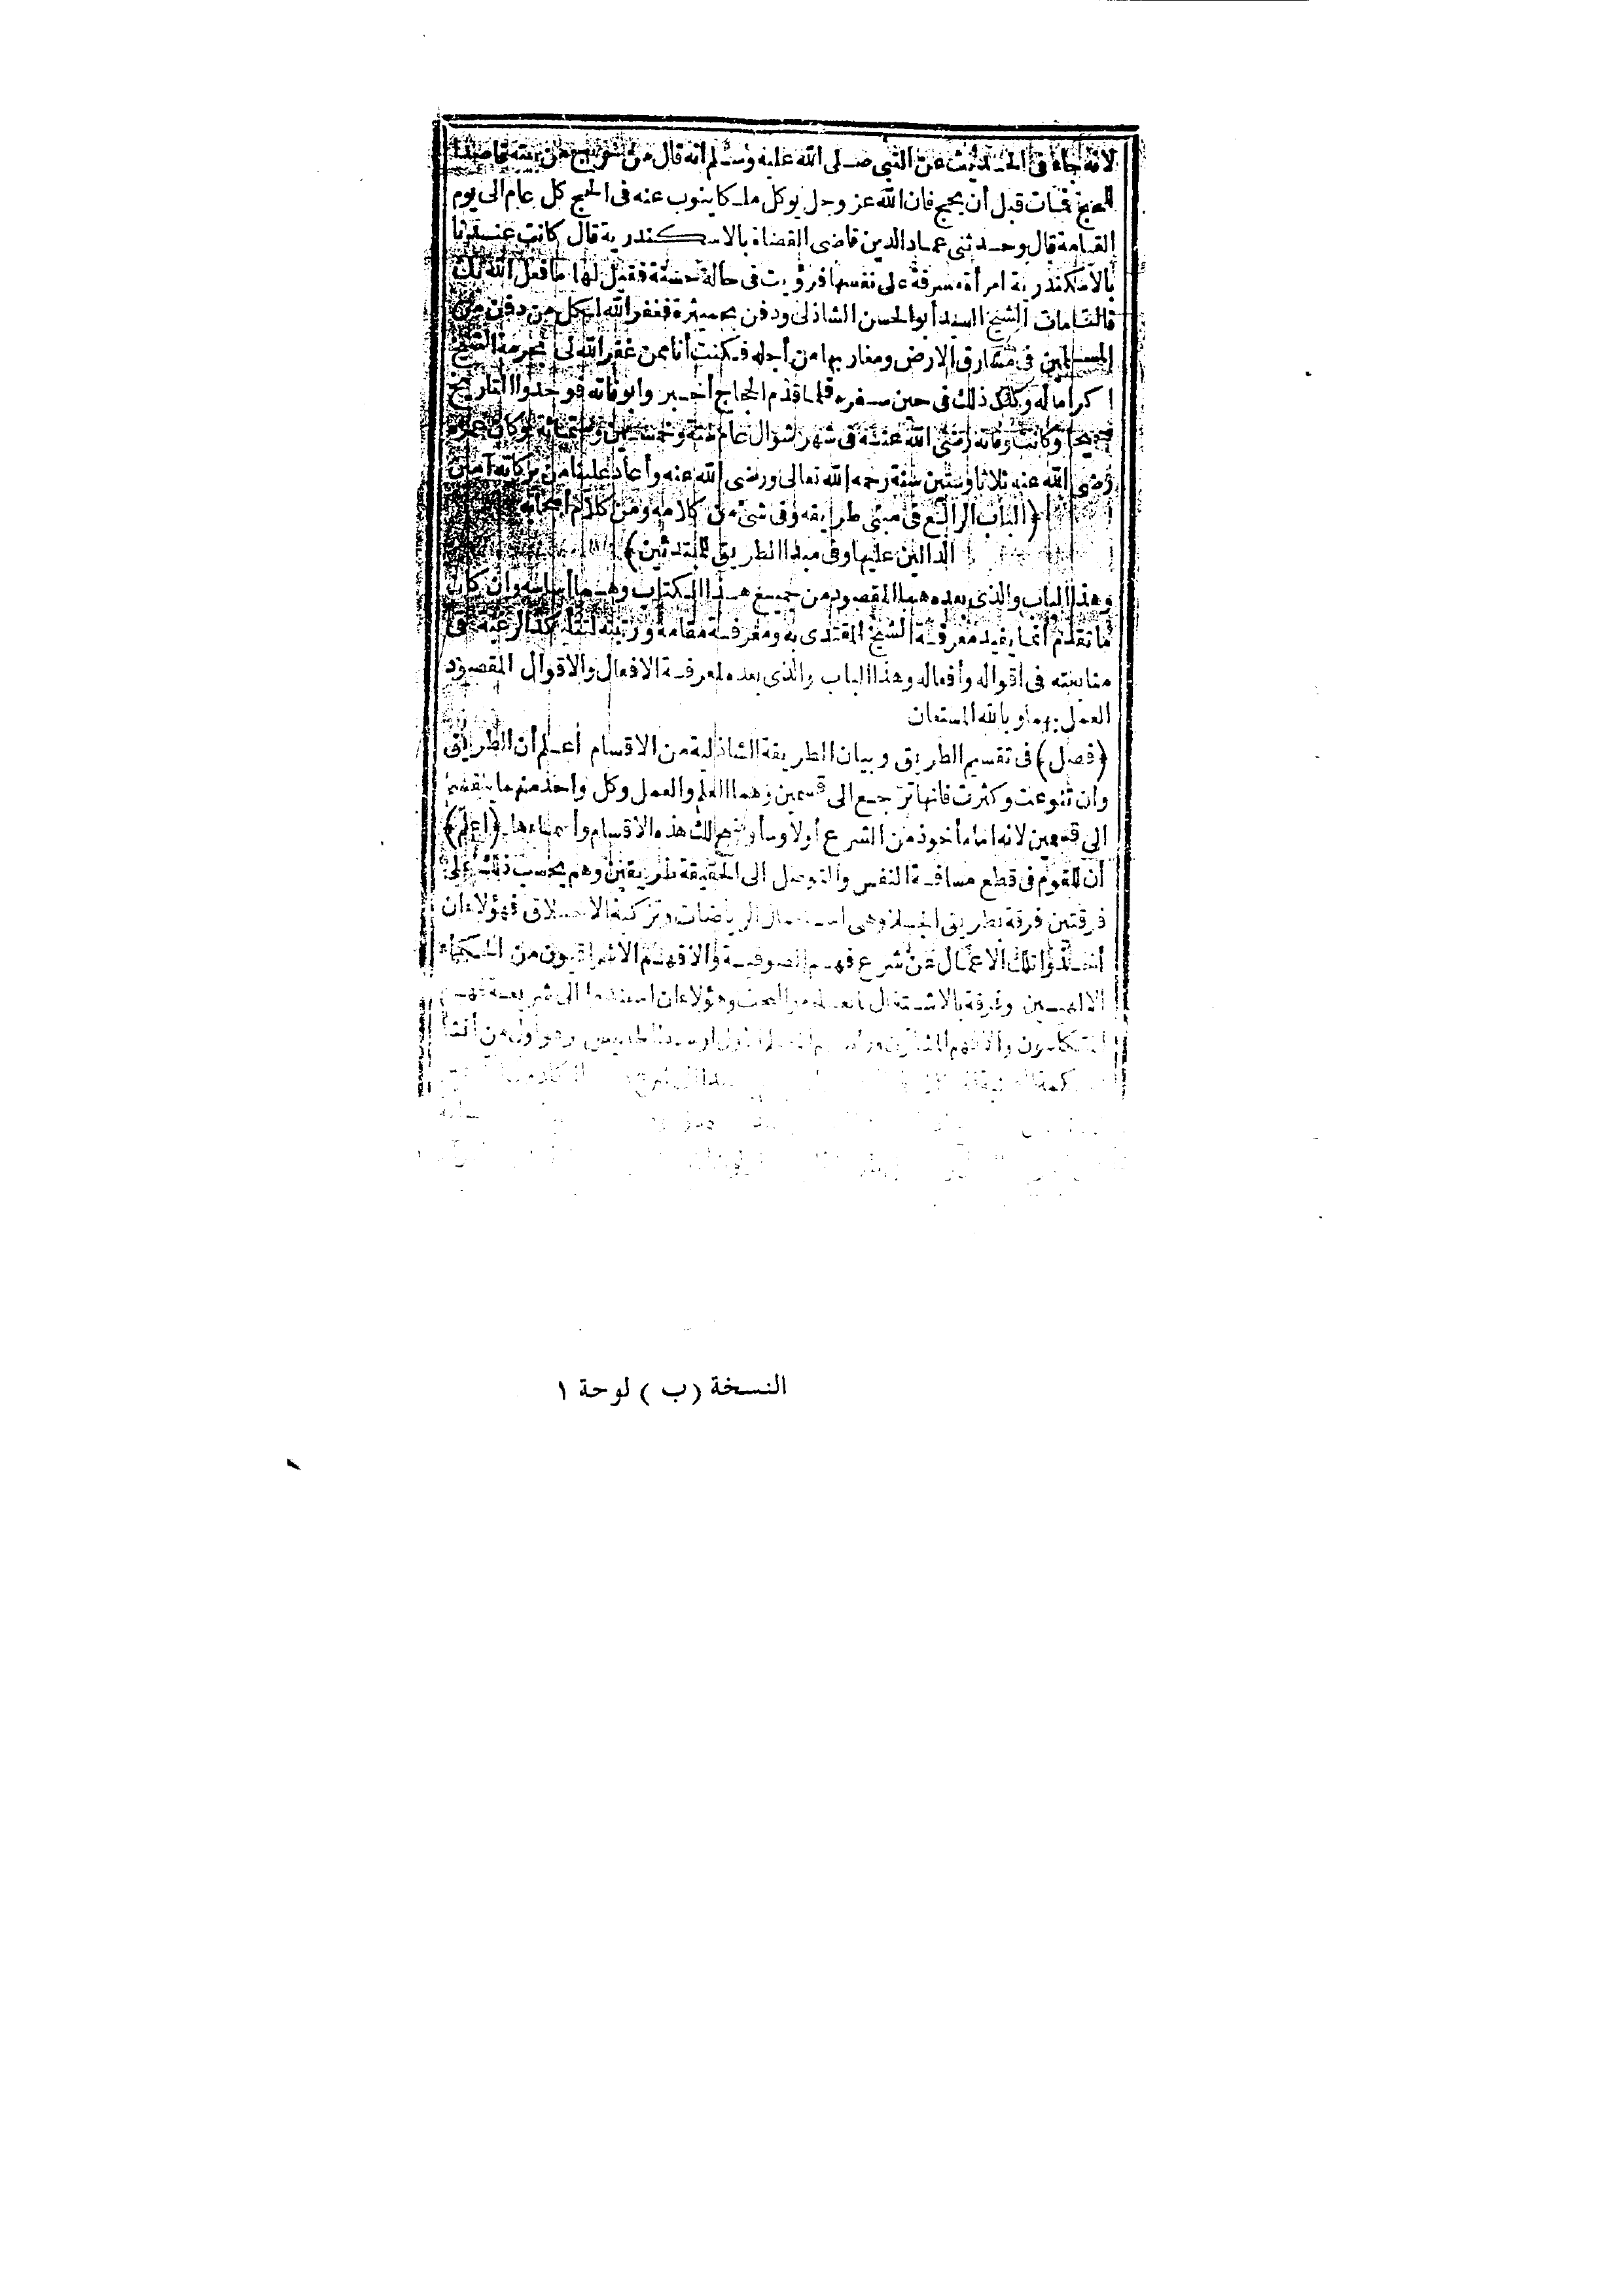 لانه جاء فى الحديث عن النبى صلى الله عليه وسلم انه قال من خرج من بيته قاصدا
للحج فمات قبل أن يحج فان الله عز وجل يوكل ملكا ينوب عنه فى الحج كل عام الى يوم
القيامة قال وحدثنى عماد الدين قاضى القضاة بالاسكندرية قال كانت عندنا
بالاسكندرية امرأة مسرفة على نفسها فرؤيت فى حالة حسنة فقيل لها ما فعل الله بك
قالت مات الشيخ السيد أبو الحسن الشاذلى ودفن بحميثرة فغفر الله لكل من دفن من
المسلمين فى مشارق الارض ومغاربها من أجله فكنت أنا ممن غفر الله لى بحرمة الشيخ
اكراما له وكان ذلك فى حين سفره فلما قدم الحجاج أخبروا بوفاته فوجدوا التاريخ
صحيحا وكانت وفاته رضى الله عنه فى شهر شوال عام ستة وخمسين وستمائة وكان عمره
رضى الله عنه ثلاثا وستين سنة رحمه الله تعالى ورضى الله عنه وأعاد علينا من بركاته آمين
﴿الباب الرابع فى مبنى طريقه وفى شئ من كلامه ومن كلام أصحابه
الدالين عليها وفى مبدا الطريق للمبتدئين﴾
وهذا الباب والذى بعده هما المقصود من جميع هذا الكتاب وهما أساسه وان كان
ما تقدم انما يفيد معرفة الشيخ المقتدى به ومعرفة مقامه ورتبته لتتأكد الرغبة فى
متابعته فى أقواله وأفعاله وهذا الباب والذى بعده لمعرفة الافعال والاقوال المقصود
العمل بهما وبالله المستعان
﴿فصل﴾ فى تقسيم الطريق وبيان الطريقة الشاذلية من الاقسام أعلم أن الطريق
وان تنوعت وكثرت فانها ترجع الى قسمين وهما العلم والعمل وكل واحد منهما ينقسم
الى قسمين لانه اما مأخوذ من الشرع أولا وسأوضح لك هذه الاقسام وأسماءها ﴿أعلم﴾
أن للقوم فى قطع مسافة النفس والتوصل الى الحقيقة طريقين وهم بحسب ذلك على
فرقتين فرقة بطريق الجلا وهى استعمال الرياضات وتزكية الاخلاق فهؤلاء ان
أخذوا تلك الاعمال عن شرع فهم الصوفية والا فهم الاشراقيون من الحكماء
الالهيين وفرقة بالاشتغال بالعلم والبحث وهؤلاء ان استندوا الى شريعة فهم
المتكلمون والا فهم المشاؤن ورئيسهم ارسطاطاليس وهو أول من أنشأ
النسخة (ب) لوحة ١